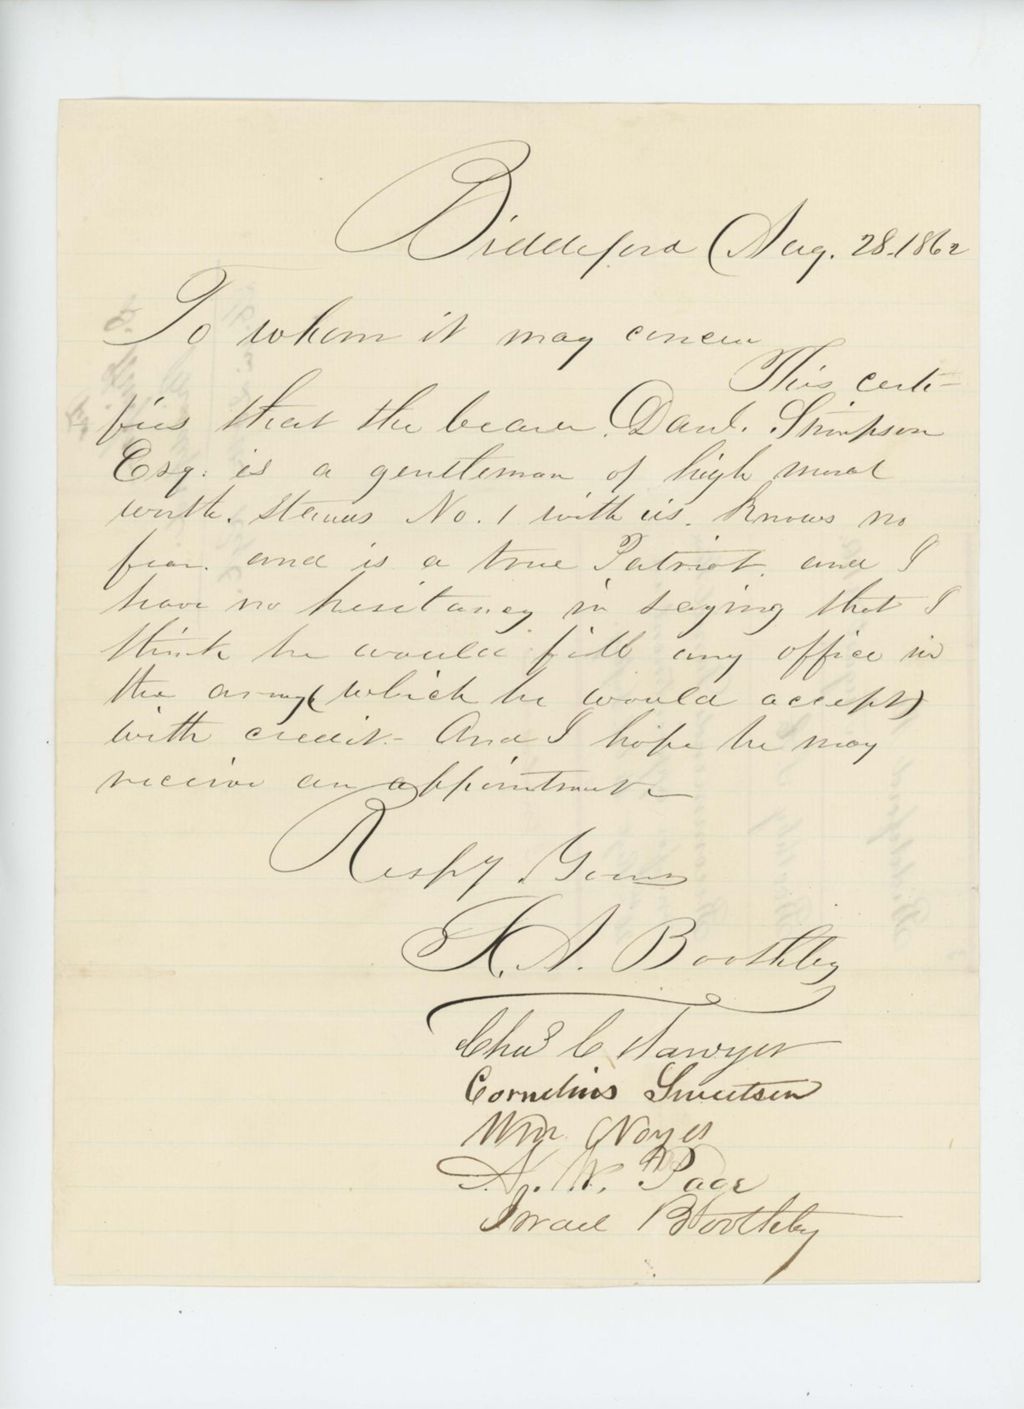 Biddeford Aug. 28. 1862
To whom it may concern
This certi-
fies that the bearer. Danl. Stimpson
Esq. is a gentleman of high moral
worth. stands No. 1 with us. Knows no
fear. and is a true Patriot. and I
have no hesitancy in saying that I
think he would fill any office in
the army (which he would accept)
with credit.- And I hope he may
receive an appointment
Respy Yours
A. Boothby
Chas C Sawyer
Cornelius Sweetser
Wm Noyes
A. W. Page
Israel Boothby